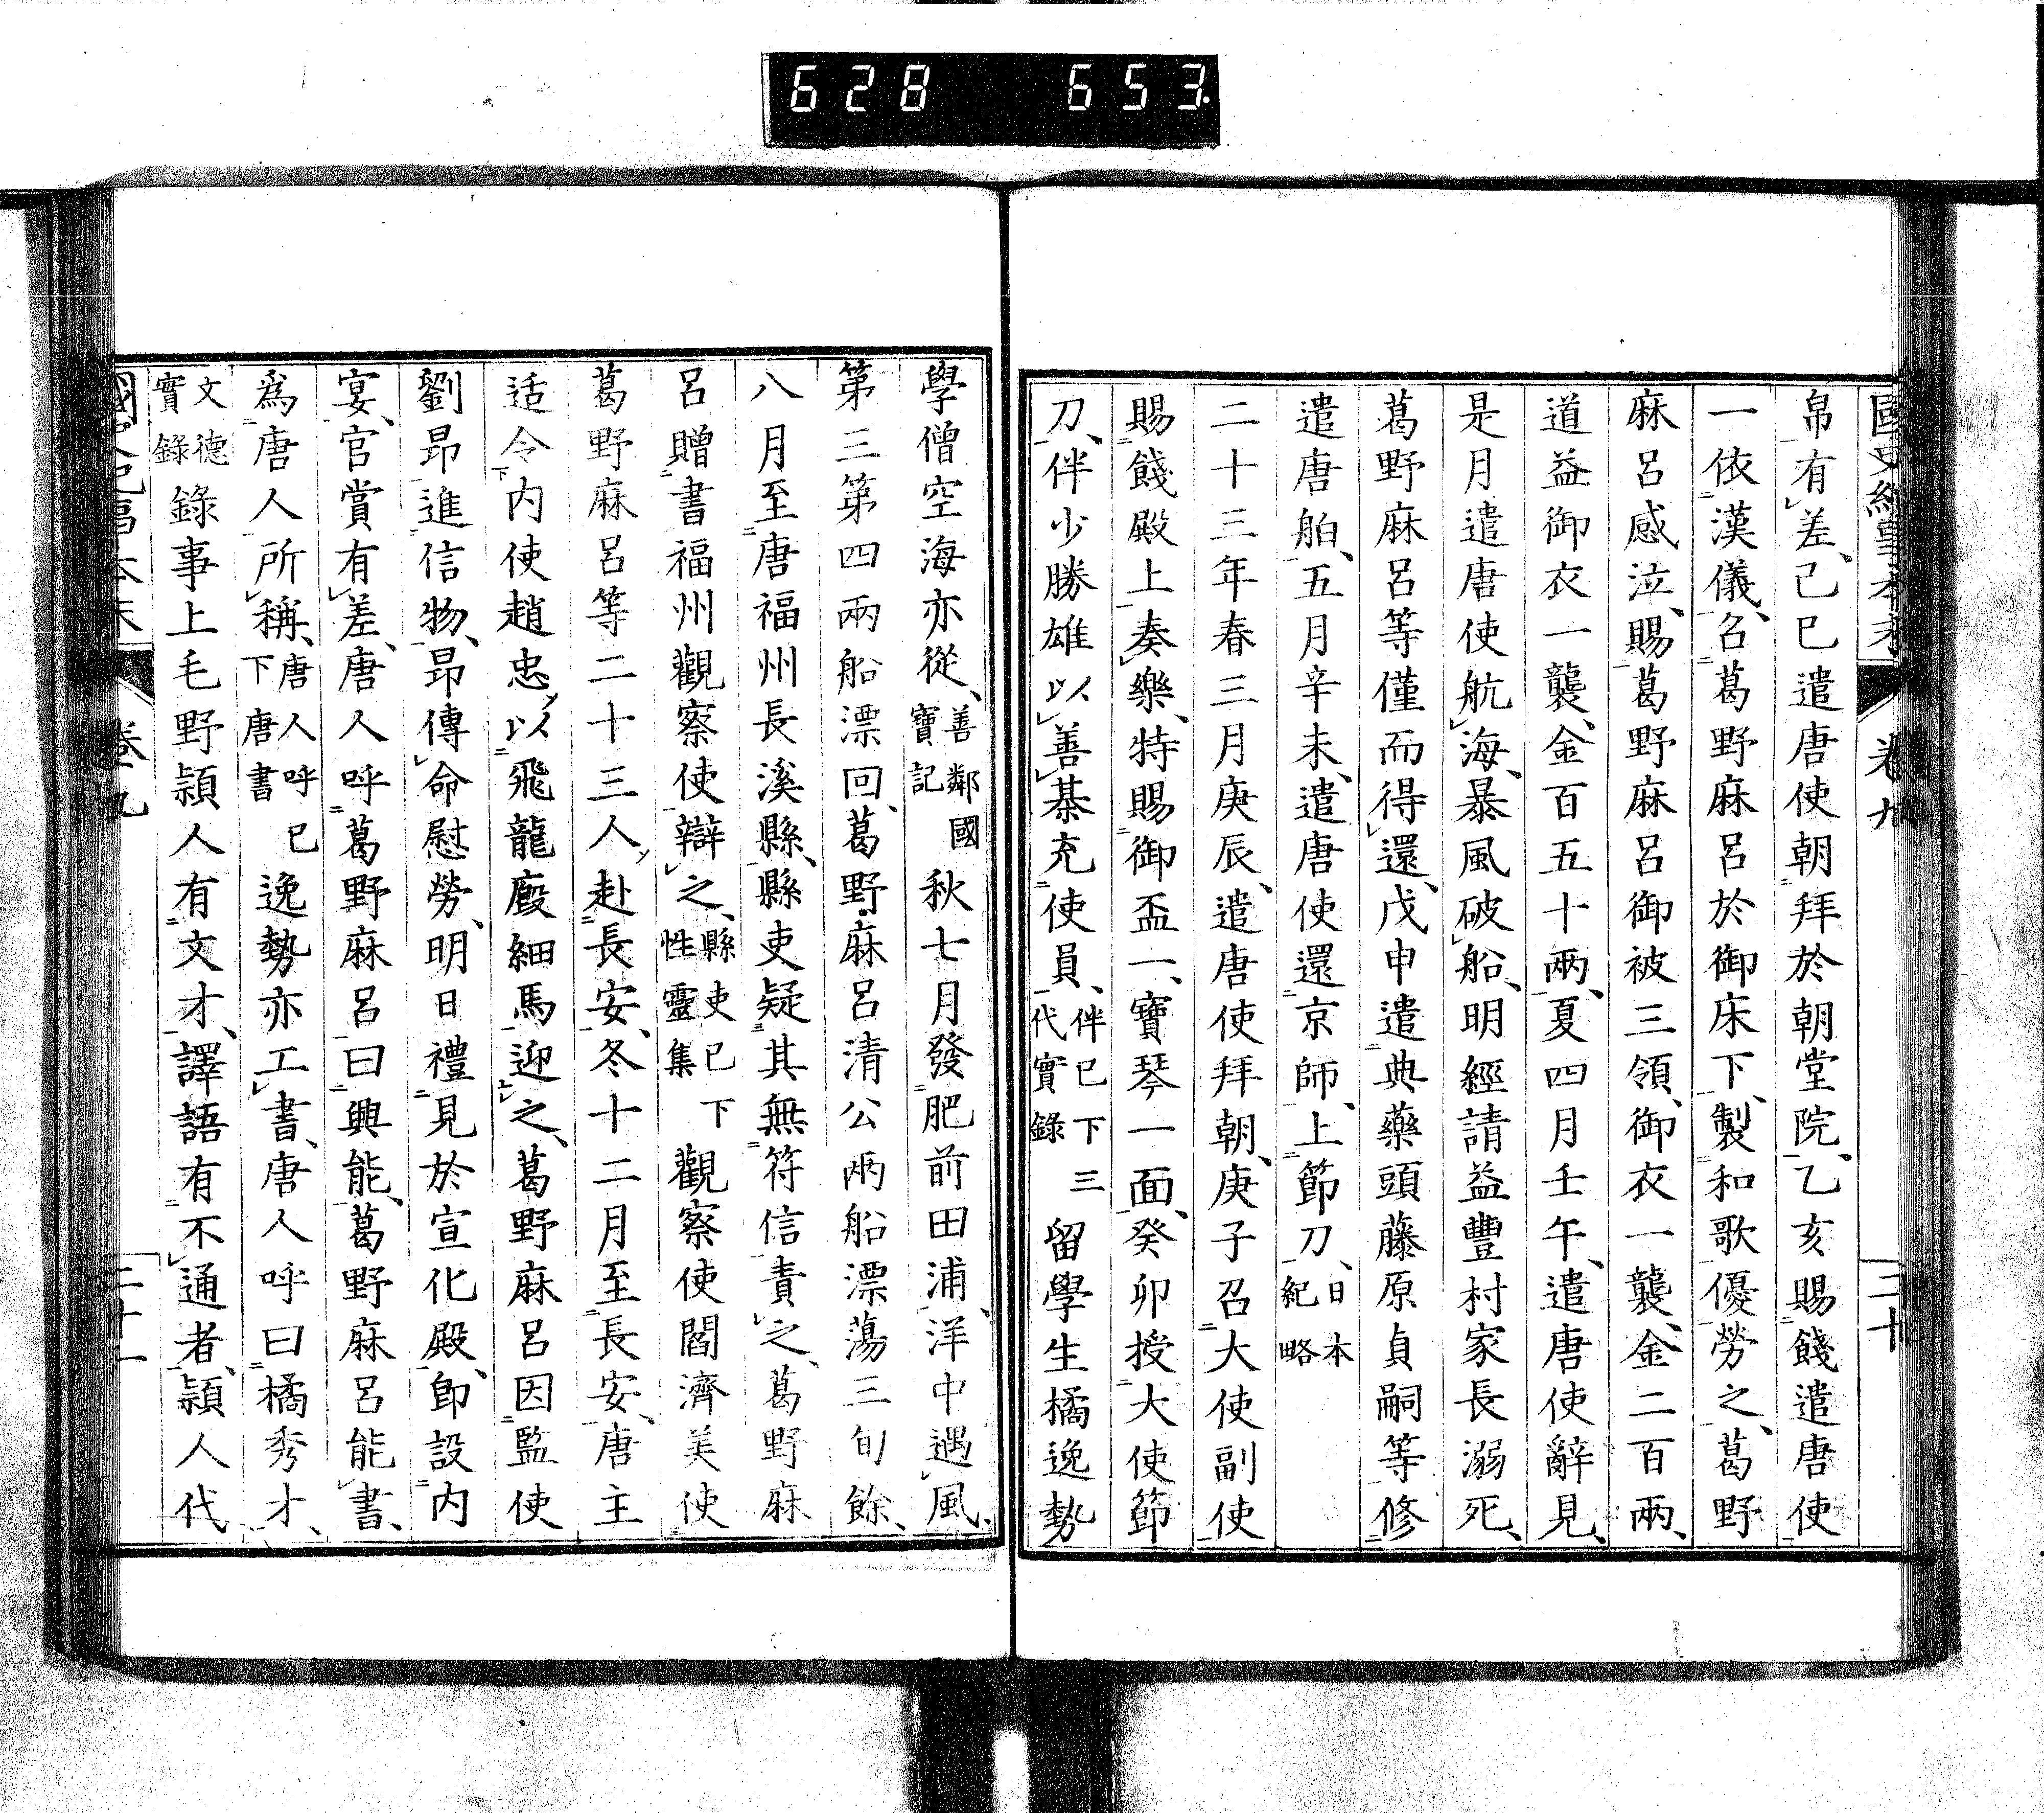 628 653
卷九
三十
帛有差、己巳遣唐使朝拜於朝堂院、乙亥賜餞遣唐使
一依漢儀、召葛野麻呂於御床下、製和歌優勞之、葛野
麻呂感泣、賜葛野麻呂御被三領、御衣一襲、金二百兩、
道益御衣一襲、金百五十兩、夏四月壬午、遣唐使辭見、
是月遣唐使航海、暴風破船、明經請益豐村家長溺死、
葛野麻呂等僅而得還、戊申遣典藥頭藤原貞嗣等修
遣唐舶、五月辛未、遣唐使還京師、上節刀、日本紀略
二十三年春三月庚辰、遣唐使拜朝、庚子召大使副使
賜餞殿上奏樂、特賜御盃一、寶琴一面、癸卯授大使節
刀、伴少勝雄以善棊充使員、伴已下三代實錄留學生橘逸勢
學僧空海亦從、善鄰國寶記秋七月發肥前田浦、洋中遇風、
第三第四兩船漂回、葛野麻呂清公兩船漂蕩三旬餘、
八月至唐福州長溪縣、縣吏疑其無符信責之、葛野麻
呂贈書福州觀察使辯之、縣吏已下性靈集觀察使閻濟美使
葛野麻呂等二十三人赴長安、冬十二月至長安、唐主
适令內使趙忠以飛龍廄細馬迎之、葛野麻呂因監使
劉昂進信物、昂傳命慰勞、明日禮見於宣化殿、卽設內
宴、官賞有差、唐人呼葛野麻呂曰興能、葛野麻呂能書、
爲唐人所稱、唐人呼已下唐書逸勢亦工書、唐人呼曰橘秀才、
文德實錄錄事上毛野頴人有文才、譯語有不通者、頴人代
卷九
三十一